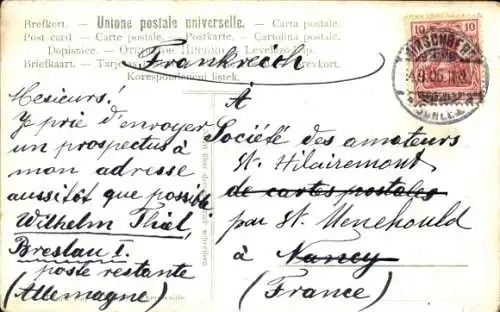 Brefkort. - Unione postale universelle. - Carta postale.
Post card - Carte postale. - Postkarte. - Cartolina postale
Dopisnice. - Открытое Письмо - Levelező-lap.
Briefkaart. - Tarjeta
Korespondencni listek.
Frankreich
10 10
HIRSCHBERG
Mesieurs!
Je prie d'envoyer
un prospectus à
mon adresse
aussitôt que possible
Wilhelm Thiel,
Breslau I.
poste restante
(Allemagne)
À
Société des amateurs
St. Hilairemont
de cartes postales
par St. Menehould
à Nancy
(France)